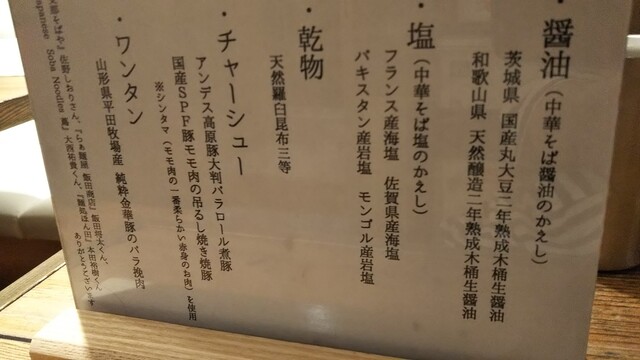 ・醤油（中華そば醤油のかえし）
茨城県 国産丸大豆二年熟成木桶生醤油
和歌山県 天然醸造二年熟成木桶生醤油
・塩（中華そば塩のかえし）
フランス産海塩 佐賀県産海塩
パキスタン産岩塩 モンゴル産岩塩
・乾物
天然羅臼昆布三等
・チャーシュー
アンデス高原豚大判バラロール煮豚
国産SPF豚モモ肉の吊るし焼き焼豚
※シンタマ（モモ肉の一番柔らかい赤身のお肉）を使用
・ワンタン
山形県平田牧場産 純粋金華豚のバラ挽肉
佐野しおりさん、『らぁ麺屋 飯田商店』飯田将太くん、
Japanese Soba Noodles 蔦』大西祐貴くん、『麺処ほん田』本田裕樹くん
ありがとうございます